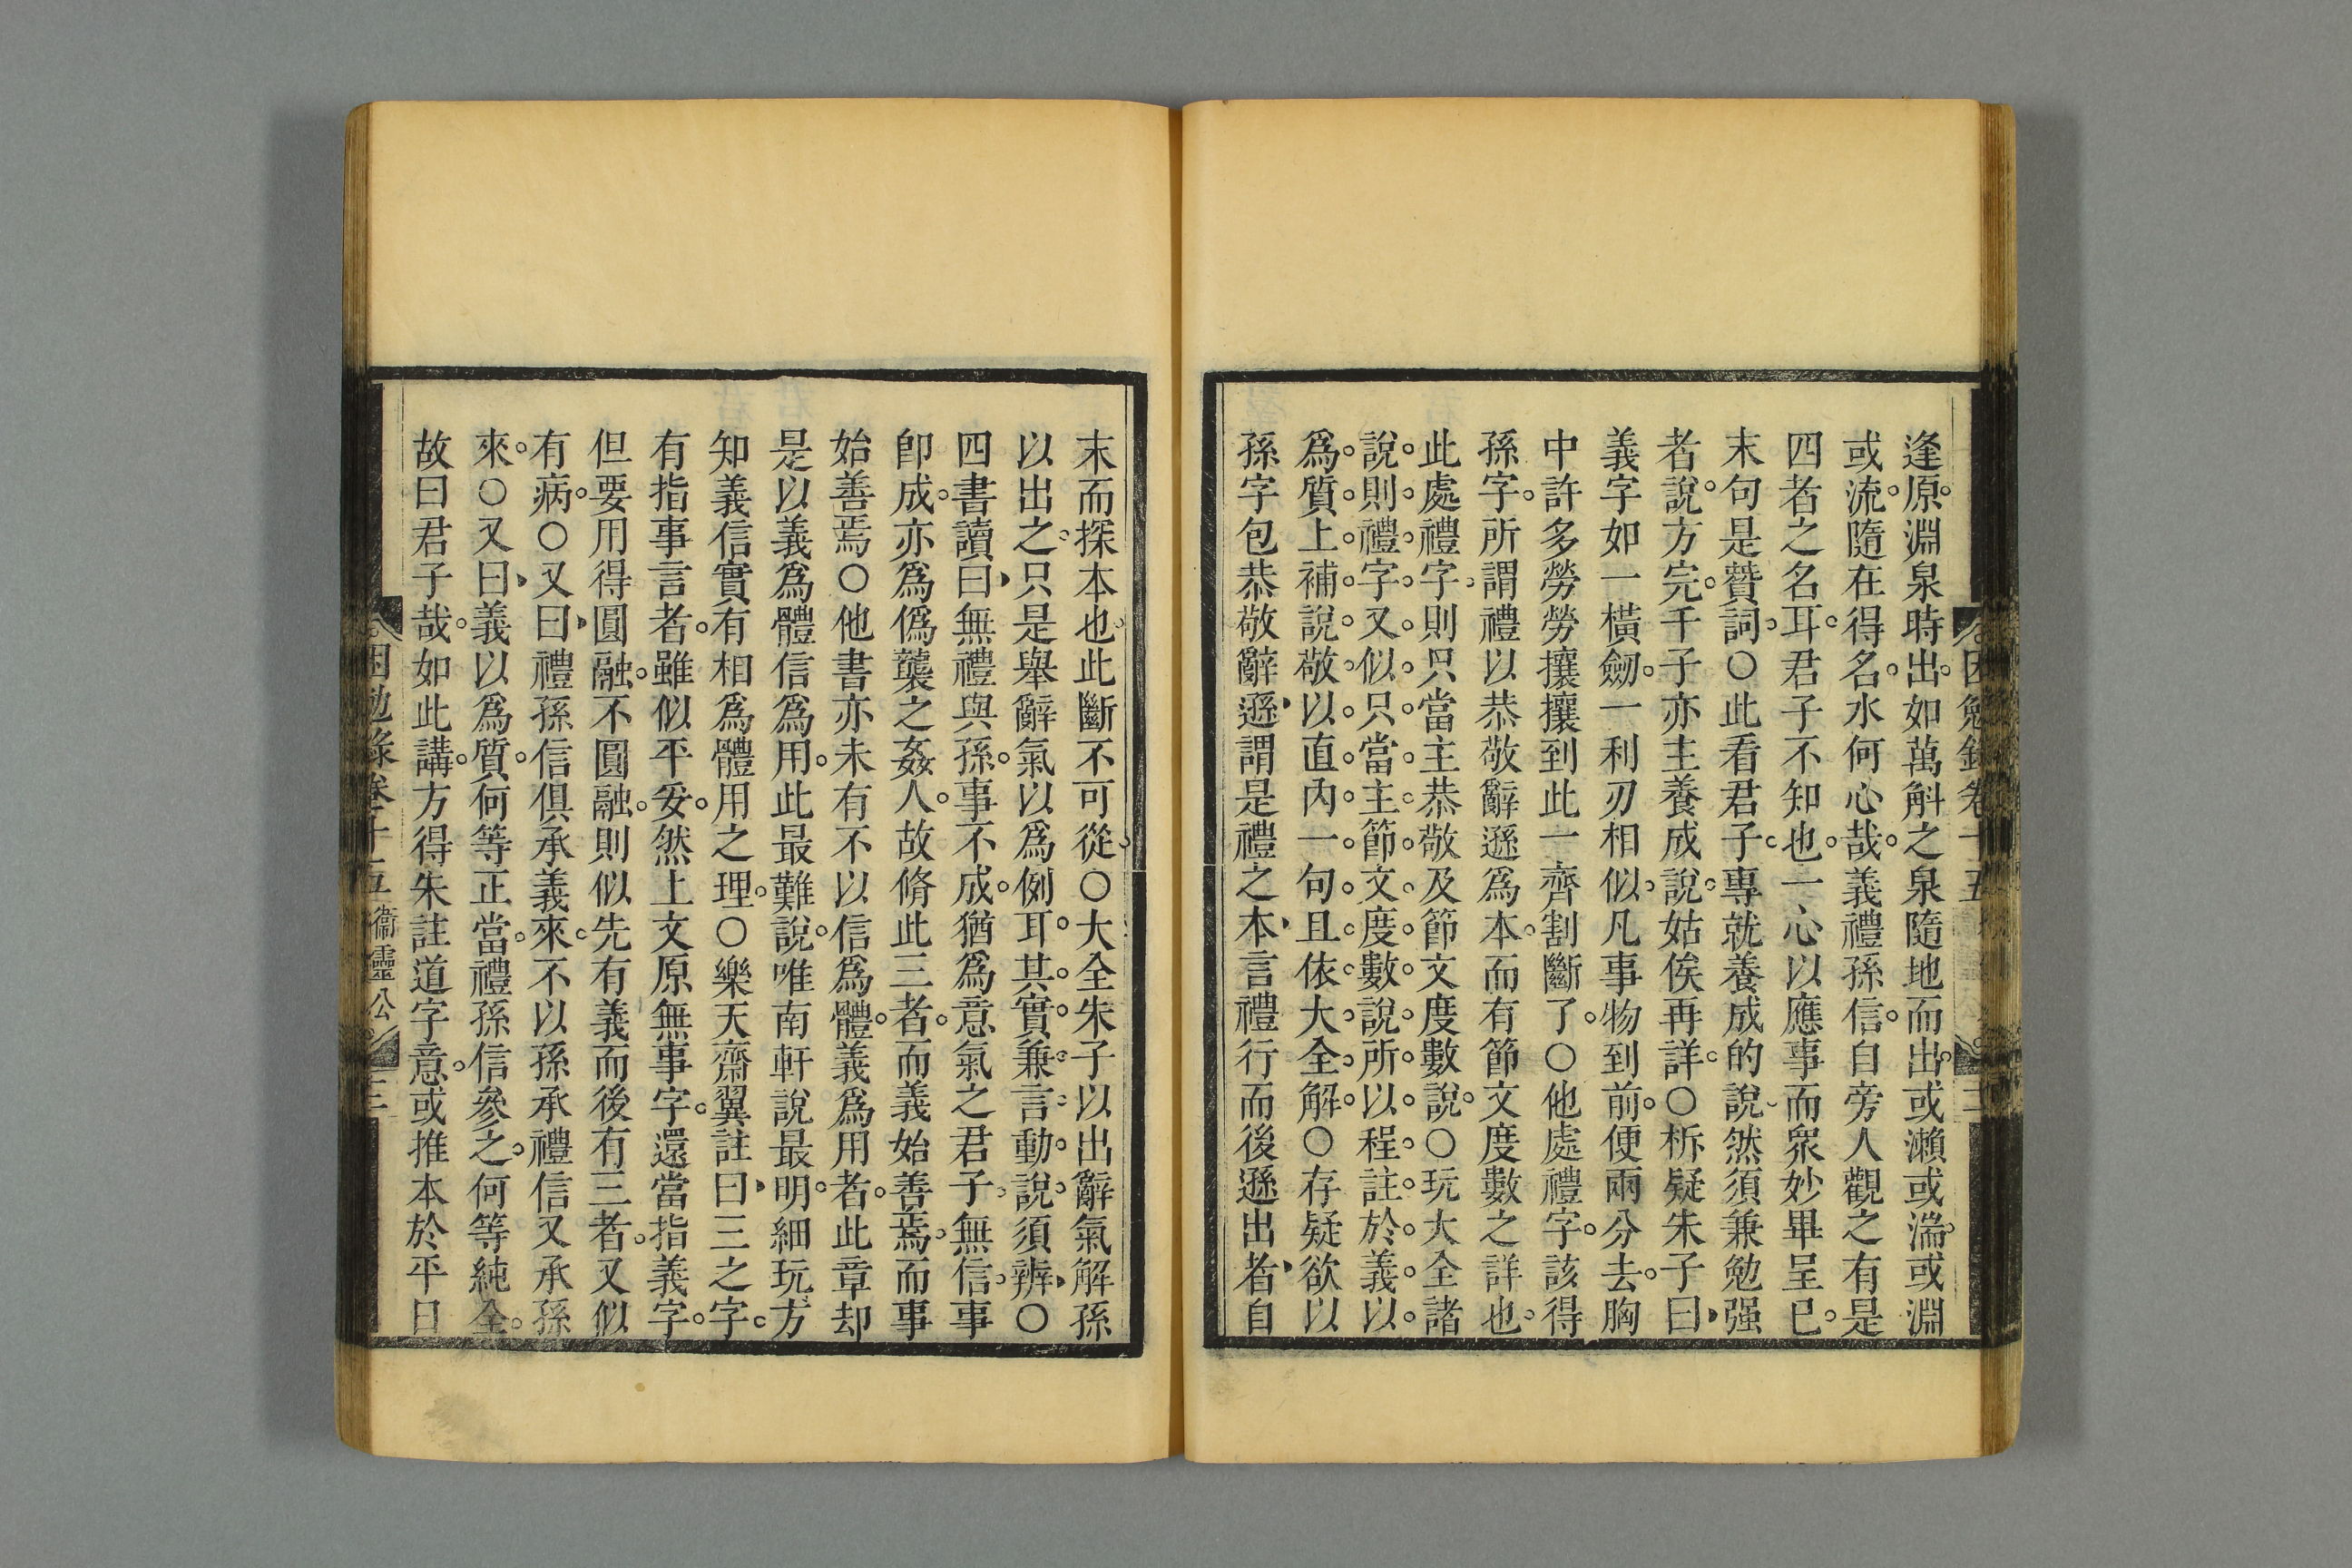 逢原淵泉時出如萬斛之泉隨地而出或瀨或湍或淵
或流隨在得名水何心哉義禮孫信自旁人觀之有是
四者之名耳君子不知也一心以應事而眾妙畢呈已
末句是贊詞○此看君子專就養成的說然須兼勉强
者說方完千子亦主養成說姑俟再詳○柝疑朱子曰
義字如一橫劒一利刃相似凡事物到前便兩分去胸
中許多勞勞攘攘到此一齊割斷了○他處禮字該得
孫字所謂禮以恭敬辭遜爲本而有節文度數之詳也
此處禮字則只當主恭敬及節文度數說○玩大全諸
說則禮字又似只當主節文度數說所以程註於義以
爲質上補說敬以直內一句且依大全解○存疑欲以
孫字包恭敬辭遜謂是禮之本言禮行而後遜出者自
困勉錄卷十五 三
末而探本也此斷不可從○大全朱子以出辭氣解孫
以出之只是舉辭氣以爲例耳其實兼言動說須辨○
四書讀曰無禮與孫事不成猶爲意氣之君子無信事
卽成亦爲僞襲之姦人故脩此三者而義始善焉而事
始善焉○他書亦未有不以信爲體義爲用者此章却
是以義爲體信爲用此最難說唯南軒說最明細玩方
知義信實有相爲體用之理○樂天齋翼註曰三之字
有指事言者雖似平妥然上文原無事字還當指義字
但要用得圓融不圓融則似先有義而後有三者又似
有病○又曰禮孫信俱承義來不以孫承禮信又承孫
來○又曰義以爲質何等正當禮孫信參之何等純全
故曰君子哉如此講方得朱註道字意或推本於平日
困勉錄卷十五 衞靈公 三